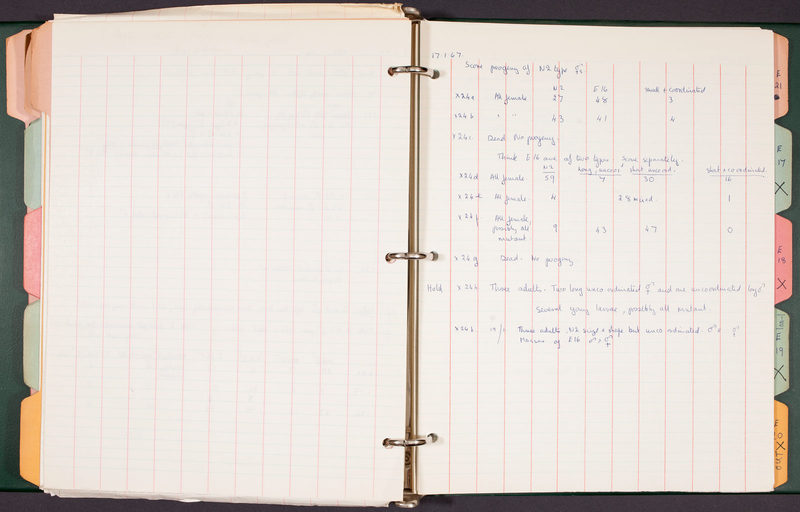 17.1.67.
Score progeny of N2 type ⚥s
N2 E16 Short + coordinated
x24a All female 27 48 3
x24b " " 43 41 4
x24c Dead No progeny.
Think E16 are of two types. Score separately.
N2 long, uncoor short uncoord. Short + co-ordinated.
x24d All female 59 7 30 16
x24e All female. 4 28 1
x24f All female, 9 43 47 0
possibly all
mutant
x24g Dead. No progeny
Hold x24h Three adults. Two long unco-ordinated ⚥ and one uncoordinated ♂
Several young larvae, possibly all mutant
x24h Three adults, N2 size + shape but unco-ordinated.
of E16
E
21
E
17
X
E
18
X
E
19
X
E
20
X
OUT